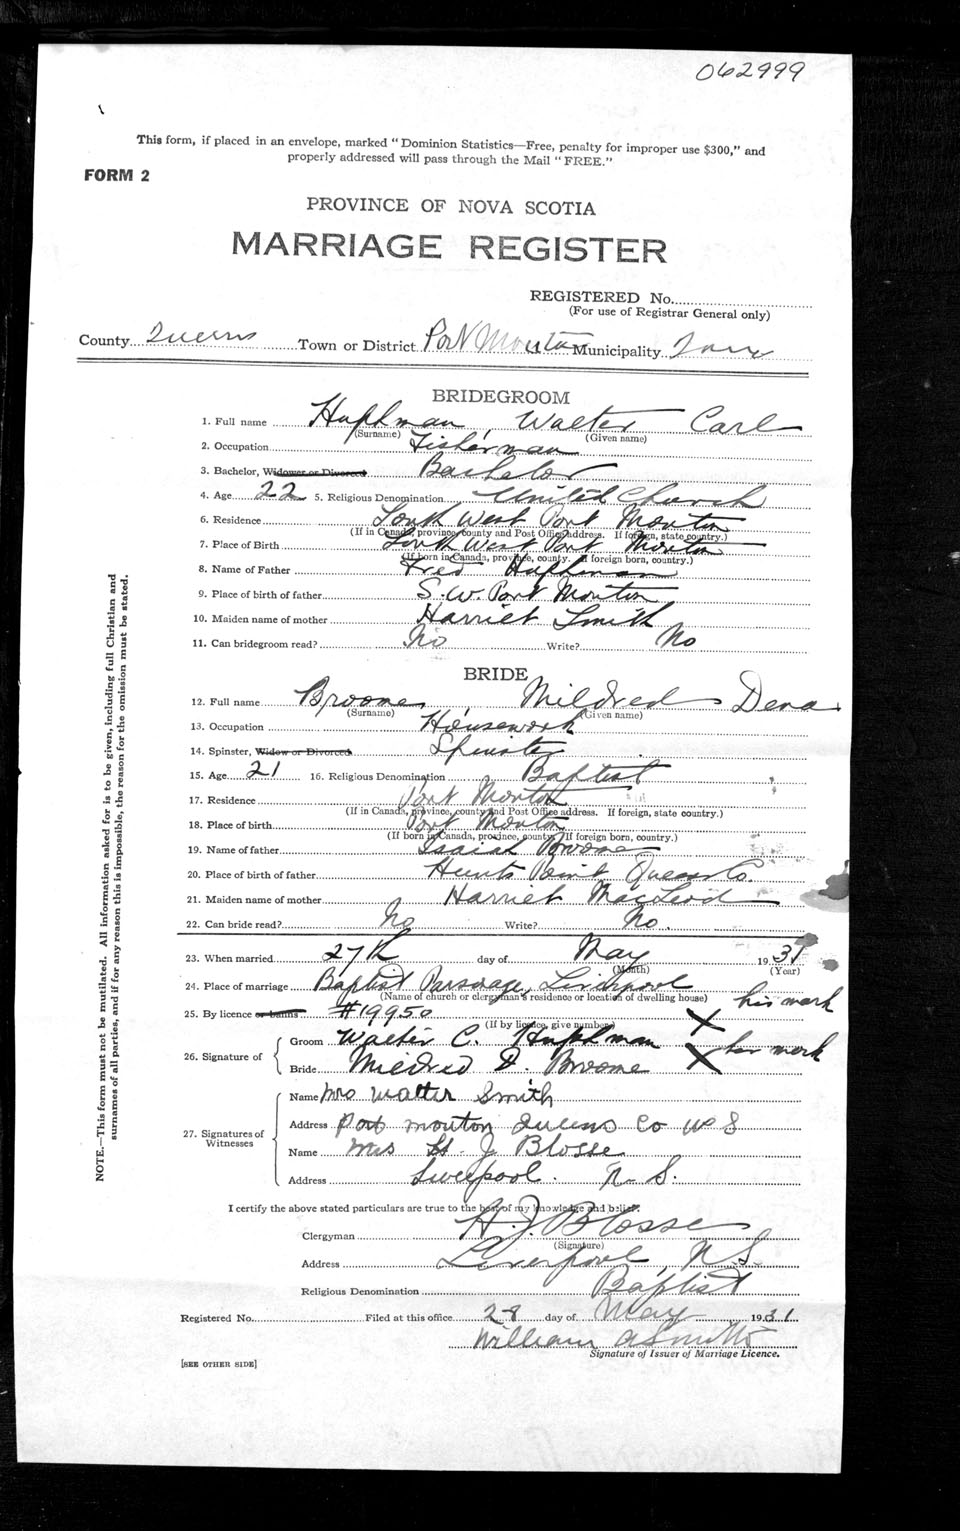 062999
This form, if placed in an envelope, marked "Dominion Statistics—Free, penalty for improper use $300," and
properly addressed will pass through the Mail "FREE."
FORM 2
PROVINCE OF NOVA SCOTIA
MARRIAGE REGISTER
REGISTERED No.
(For use of Registrar General only)
County Queens Town or District Port Mouton Municipality
BRIDEGROOM
1. Full name Huphman, Walter Carl
(Surname) (Given name)
2. Occupation Fisherman
3. Bachelor, Widower or Divorced Bachelor
4. Age 22 5. Religious Denomination United Church
6. Residence South West Port Mouton
(If in Canada, province, county and Post Office address. If foreign, state country.)
7. Place of Birth South West Port Mouton
(If born in Canada, province, county. If foreign born, country.)
8. Name of Father Fred Huphman
9. Place of birth of father S. W. Port Mouton
10. Maiden name of mother Harriet Smith
11. Can bridegroom read? No Write? No
BRIDE
12. Full name Broome, Mildred Dena
(Surname) (Given name)
13. Occupation Housework
14. Spinster, Widow or Divorced Spinster
15. Age 21 16. Religious Denomination Baptist
17. Residence Port Mouton
(If in Canada, province, county and Post Office address. If foreign, state country.)
18. Place of birth Port Mouton
(If born in Canada, province, county. If foreign born, country.)
19. Name of father Isaiah Broome
20. Place of birth of father Hunts Point Queens Co.
21. Maiden name of mother Harriet MacLeod
22. Can bride read? No Write? No.
23. When married 27th day of May 1931
(Month) (Year)
24. Place of marriage Baptist Parsonage, Liverpool
(Name of church or clergyman's residence or location of dwelling house) his mark
25. By licence or banns #19950 X
(If by licence, give number)
26. Signature of Groom Walter C. Huphman her mark
Bride Mildred D. Broome X
27. Signatures of Witnesses
Name Mrs Walter Smith
Address Port Mouton Queens Co N S
Name Mrs H. J Blosse
Address Liverpool. N. S.
I certify the above stated particulars are true to the best of my knowledge and belief.
Clergyman H. J. Blosse
(Signature)
Address Liverpool, N.S.
Religious Denomination Baptist
Registered No. Filed at this office 28 day of May 1931
William A Smith
Signature of Issuer of Marriage Licence.
[SEE OTHER SIDE]
NOTE.—This form must not be mutilated. All information asked for is to be given, including full Christian and
surnames of all parties, and if for any reason this is impossible, the reason for the omission must be stated.